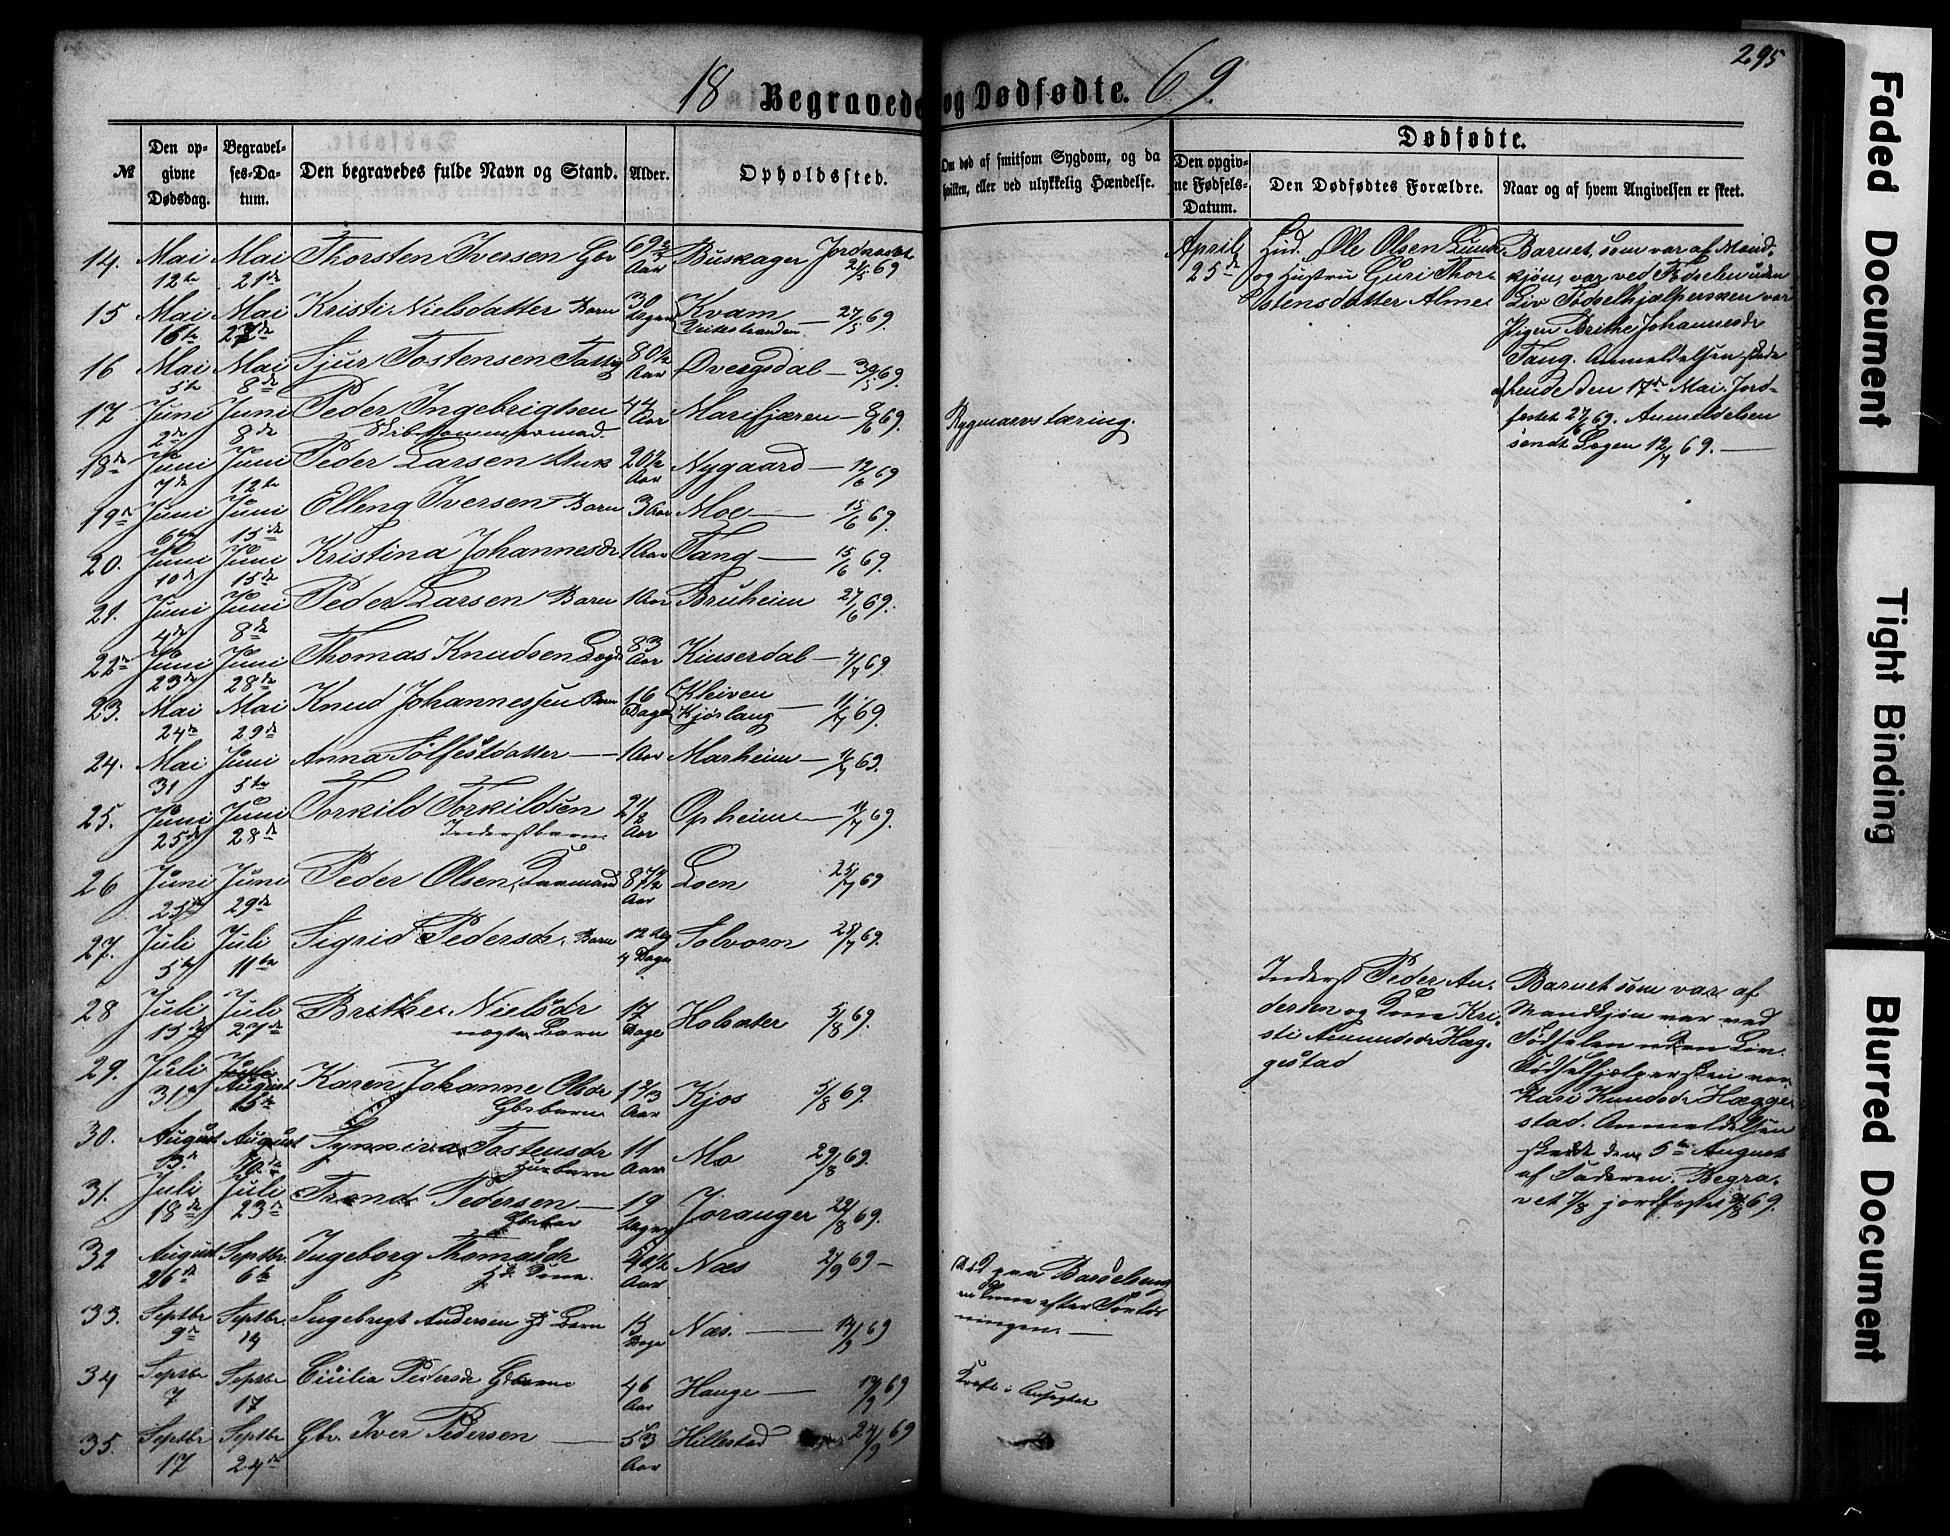 295
18 Begravede og Dødfødte. 69.
№ Den opgivne Dødsdag. Begravelses-Datum. Den begravedes fulde Navn og Stand. Alder. Opholdssted. Om død af smitsom Sygdom, og da hvilken, eller ved ulykkelig Hændelse.
Dødfødte.
Den opgivne Fødsels-Datum. Den Dødfødtes Forældre. Naar og af hvem Angivelsen er skeet.
14. Mai 12te Mai 21de Thorsten Iversen Gbr 69 Aar Buskager Jordkastet 69
15 Mai 16te Mai 27de Kristi Nielsdatter Barn 30 Kvam 27/5 69.
16 Mai 5te Mai 8de Sjur Tostensen 80 1/2 Aar Dvergsdal 69.
17 Juni 2de Juni 8de Peder Ingebrigtsen 44 Aar Marifjæren 8/6 69. Rygmarvstæring.
18de Juni 7de Juni 12te Peder Larsen 20 1/2 Aar Nygaard 12/6 69
19de Juni 6te Juni 15de Elling Iversen Barn 3 Aar Moe 15/6 69.
20. Juni 10de Juni 15de Kristina Johannesdr 1 Aar Tang 15/6 69.
21. Juni 4de Juni 8de Peder Larsen Barn 1 Aar Bruheim 27/6 69.
22de Juni 23de Juni 28de Thomas Knudsen Lægd 83 Aar Kinserdal 4/7 69.
23. Mai 24de Mai 29de Knud Johannessen Barn 16 Dage Kleiven Kjørlaug 11/7 69.
24. Mai 31 Juni 5te Anna Solfestdatter 1 Aar Marheim 11/7 69.
25. Juni 25de Juni 28de Torkild Torkildsen 2 1/2 Aar Opheim 14/7 69.
Inderstbarn
26 Juni 25de Juni 29de Peder Olsen, Kaarmand 87 1/2 Aar Loen 25/7 69
27. Juli 5te Juli 11te Sigrid Pedersdr, Barn 4 Dage Solvorn 25/7 69.
28 Juli 15de Juli 27de Brithe Nielsdr 17 Dage Holsæter 5/8 69.
nægte Barn
29. Juli 31 August 15de Karen Johanne Olsdr 1 2/3 Aar Kjos 5/8 69
Gbrbarn
30. August August Synneva Tostensdr 11 Aar Mo 29/8 69.
31. Juli 18de Juli 23de Trond Pedersen 19 Joranger 22/8 69.
32 August 26de Septbr. 6te Ingeborg Thomasdr Aar Næs 2/9 69
33. Septbr 9de Septbr. 14 Ingebrigt Andersen Barn 13 Dage Næs. 14/9 69
34 Septbr 7 Septbr 17 Cicilia Pedersdr 46 Aar Hauge 19/9 69
Kræft i Ansigtet
35. Septbr 17 Septbr 24de Gbr. Iver Pedersen 53 Aar Hillestad 24/9 69
Død paa Barselseng
efter Forløs
ningen.
April 25de
Hud. Ole Olsen Lunde
og Hustru Guri Thor
stensdatter Alme
Barnet, som var af Mand-
kjøn, var ved Fødselen uden
Liv. Fødselhjælpersken var
Pigen Brithe Johannesdr
Tang. Anmeldelsen skede
den 17de Mai. Jord-
festet 27/6 69. Anmeldelsen
sendt Lægen 12/7 69.
Inderst Peder An-
dersen og Kone Kri-
sti Amundsdr Hæg-
gestad
Barnet som var af
Mandkjøn var ved
Fødselen uden Liv.
Fødselhjælpersken var
Kari Knudsdr Hægge
stad. Anmeldelsen
skede den 5te August
af Faderen. Begra-
vet 7/8 jordfæstet 8/8 69.
Faded Document
Tight Binding
Blurred Document